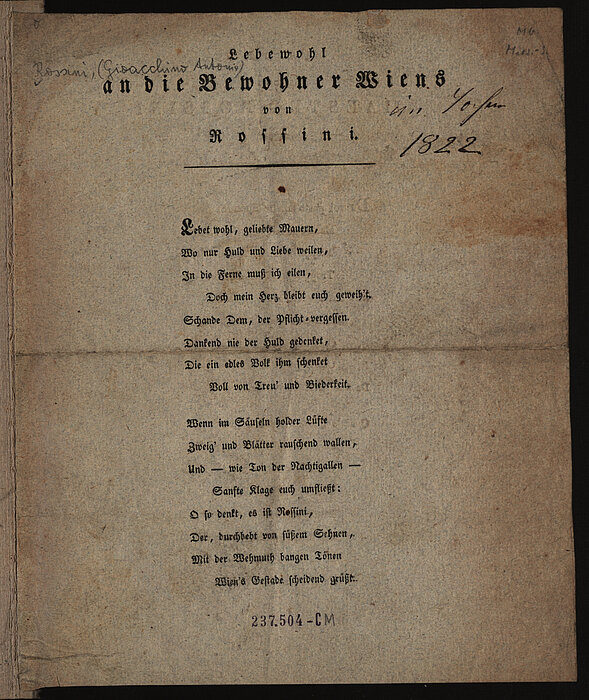 Lebewohl
Rossini, (Gioacchino Antonio)
an die Bewohner Wiens
von
Rossini.
1822
Lebet wohl, geliebte Mauern,
Wo nur Huld und Liebe weilen,
In die Ferne muß ich eilen,
Doch mein Herz bleibt euch geweih't.
Schande Dem, der Pflicht-vergessen
Dankend nie der Huld gedenket,
Die ein edles Volk ihm schenket
Voll von Treu' und Biederkeit.
Wenn im Säuseln holder Lüfte
Zweig' und Blätter rauschend wallen,
Und — wie Ton der Nachtigallen —
Sanfte Klage euch umfließt:
O so denkt, es ist Rossini,
Der, durchbebt von süßem Sehnen,
Mit der Wehmuth bangen Tönen
Wien's Gestade scheidend grüßt.
237.504-CM